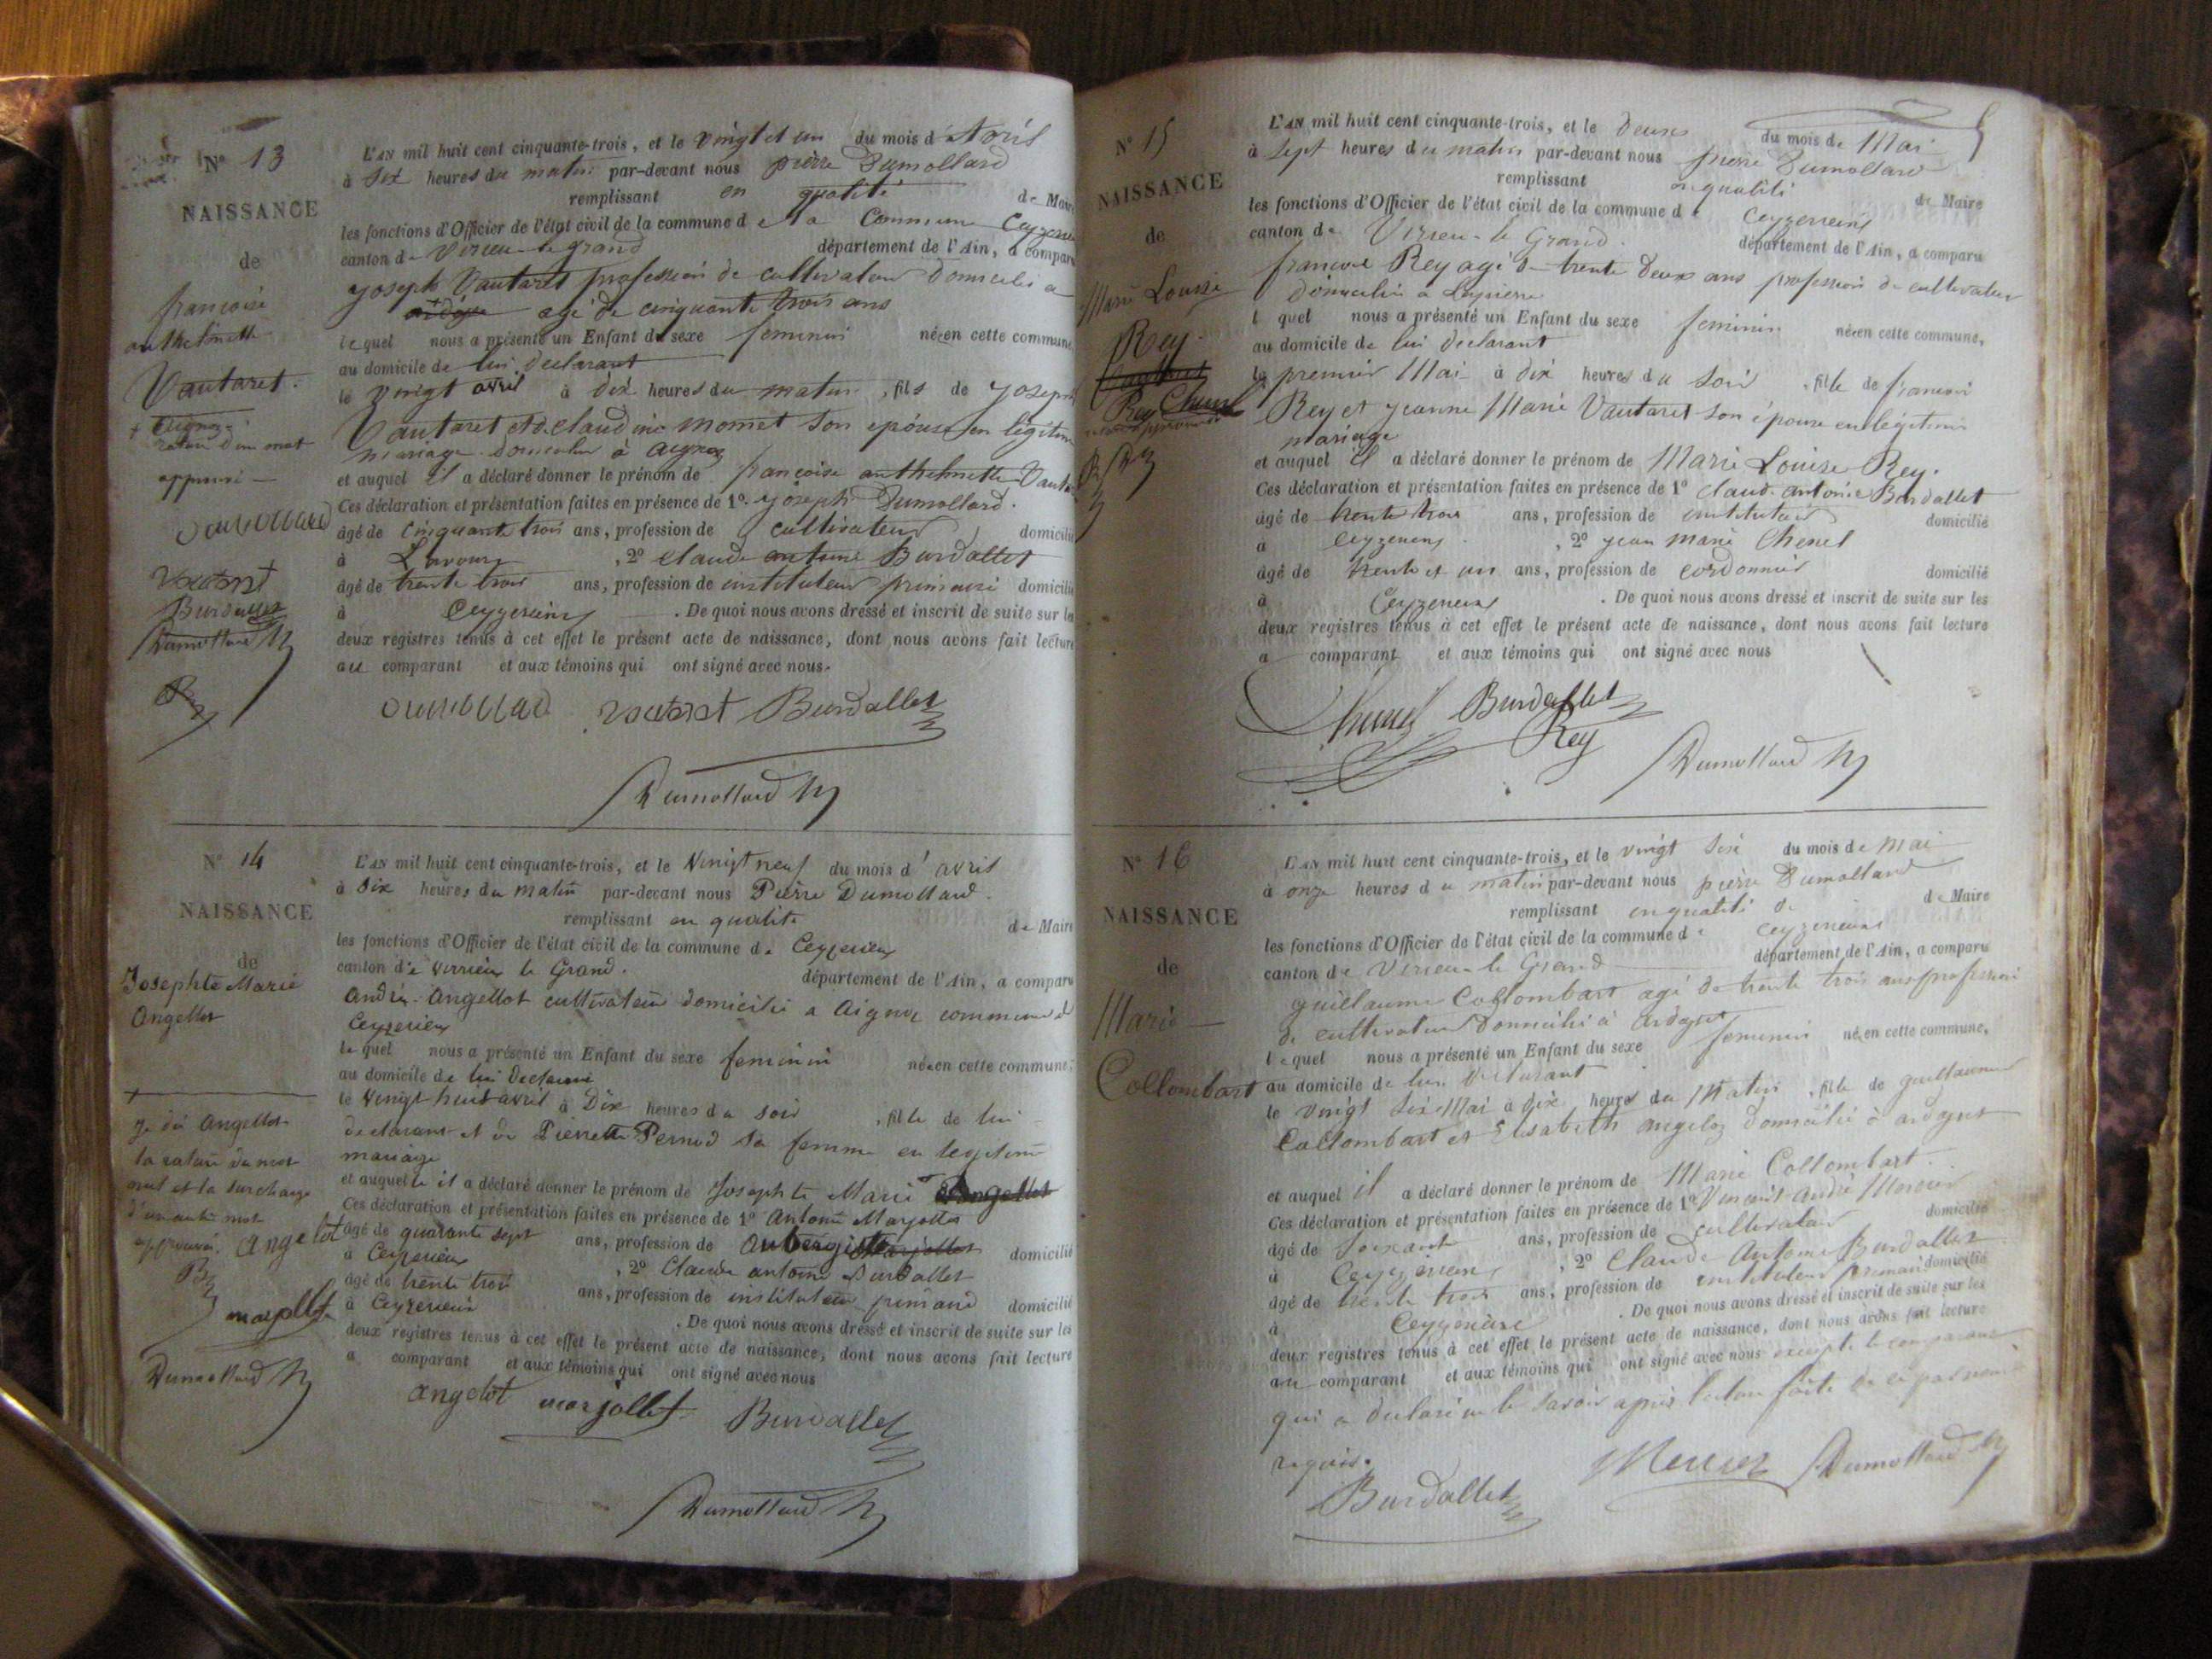 N° 13
NAISSANCE
de
françoise
anthelmette
Vautaret.
+ aignoz
rature d'un mot
approuvé —
Dumollard
Vautaret
Burdallet
Dumollard M
L'AN mil huit cent cinquante-trois, et le vingt et un du mois d'Avril
à six heures du matin par-devant nous pierre Dumollard
remplissant en qualité de Maire
les fonctions d'Officier de l'état civil de la commune de la Commune
canton de Virieu-le grand département de l'Ain, a comparu
joseph Vautaret profession de cultivateur Domicilié a
agé de cinquante trois ans
lequel nous a présenté un Enfant du sexe feminin née en cette commune,
au domicile de lui declarant
le vingt avril à dix heures du matin, fils de joseph
Vautaret et de claudine momet son épouse en légitime
mariage domicilier à aignoz
et auquel il a déclaré donner le prénom de françoise anthelmette
Ces déclaration et présentation faites en présence de 1° joseph Dumollard.
âgé de cinquante trois ans, profession de cultivateur domicilié
à Lavours, 2° claude antoine Burdallet
âgé de trente trois ans, profession de instituteur primaire domicilié
à Ceyzerieux. De quoi nous avons dressé et inscrit de suite sur les
deux registres tenus à cet effet le présent acte de naissance, dont nous avons fait lecture
au comparant et aux témoins qui ont signé avec nous.
Dumollard Vautaret Burdallet
Dumollard M
N° 14
NAISSANCE
de
Josephte Marie
Angellot
+
angellot
la rature du mot
et la surcharge
d'un autre mot
approuvé. Angelot
marjollet
Dumollard M
L'AN mil huit cent cinquante-trois, et le Vingt neuf du mois d'avril
à six heures du matin par-devant nous Pierre Dumollard.
remplissant en qualité de Maire
les fonctions d'Officier de l'état civil de la commune de Ceyzerieux
canton de Virrieux le Grand. département de l'Ain, a comparu
André Angellot cultivateur domicilié a Aignoz commune de
Ceyzerieux
lequel nous a présenté un Enfant du sexe feminin née en cette commune,
au domicile de lui declarant
le vingt huit avril à Dix heures du soir, fille de lui
declarant et de Pierrette Pernod sa femme en legitime
mariage
et auquel il a déclaré donner le prénom de Josephte Marie Angellot
Ces déclaration et présentation faites en présence de 1° Antoine Marjollet
âgé de quarante sept ans, profession de Aubergiste domicilié
à Ceyzerieux, 2° Claude antoine Burdallet
âgé de trente trois ans, profession de instituteur primaire domicilié
à Ceyzerieux. De quoi nous avons dressé et inscrit de suite sur les
deux registres tenus à cet effet le présent acte de naissance, dont nous avons fait lecture
a comparant et aux témoins qui ont signé avec nous
angelot marjollet Burdallet
Dumollard M
5
N° 15
NAISSANCE
de
Marie Louise
Rey.
L'AN mil huit cent cinquante-trois, et le deux du mois de Mai
à sept heures du matin par-devant nous pierre Dumollard
remplissant en qualité de Maire
les fonctions d'Officier de l'état civil de la commune de Ceyzerieux
canton de Virieu-le Grand. département de l'Ain, a comparu
françois Rey agé de trente deux ans profession de cultivateur
Domicilié a
lequel nous a présenté un Enfant du sexe feminin née en cette commune,
au domicile de lui declarant
le premier Mai à dix heures du soir, fille de françois
Rey et jeanne Marie Vautaret son épouse en légitime
mariage
et auquel il a déclaré donner le prénom de Marie Louise Rey.
Ces déclaration et présentation faites en présence de 1° claude antoine Burdallet
âgé de trente trois ans, profession de instituteur domicilié
à Ceyzerieux, 2° jean marie Chenel
âgé de trente et un ans, profession de cordonnier domicilié
à Ceyzerieux. De quoi nous avons dressé et inscrit de suite sur les
deux registres tenus à cet effet le présent acte de naissance, dont nous avons fait lecture
a comparant et aux témoins qui ont signé avec nous
Chenel Burdallet
Rey
Dumollard M
N° 16
NAISSANCE
de
Marie
Collombart
L'AN mil huit cent cinquante-trois, et le vingt six du mois de Mai
à onze heures du matin par-devant nous pierre Dumollard
remplissant en qualité de de Maire
les fonctions d'Officier de l'état civil de la commune de Ceyzerieux
canton de Virieu-le Grand département de l'Ain, a comparu
guillaume Collombart agé de trente trois ans profession
de cultivateur Domicilié à ardosset
lequel nous a présenté un Enfant du sexe feminin née en cette commune,
au domicile de lui declarant
le vingt six Mai à dix heures du Matin, fille de guillaume
Collombart et Elisabeth angeloz domicilié à ardosset
et auquel il a déclaré donner le prénom de Marie Collombart.
Ces déclaration et présentation faites en présence de 1° Vincent André Mercier
âgé de soixante ans, profession de cultivateur domicilié
à Ceyzerieux, 2° Claude Antoine Burdallet
âgé de trente trois ans, profession de instituteur primaire domicilié
à Ceyzerieux. De quoi nous avons dressé et inscrit de suite sur les
deux registres tenus à cet effet le présent acte de naissance, dont nous avons fait lecture
au comparant et aux témoins qui ont signé avec nous excepté le comparant
qui a declaré ne le savoir après lecture faite de ce
requis.
Burdallet Mercier Dumollard M